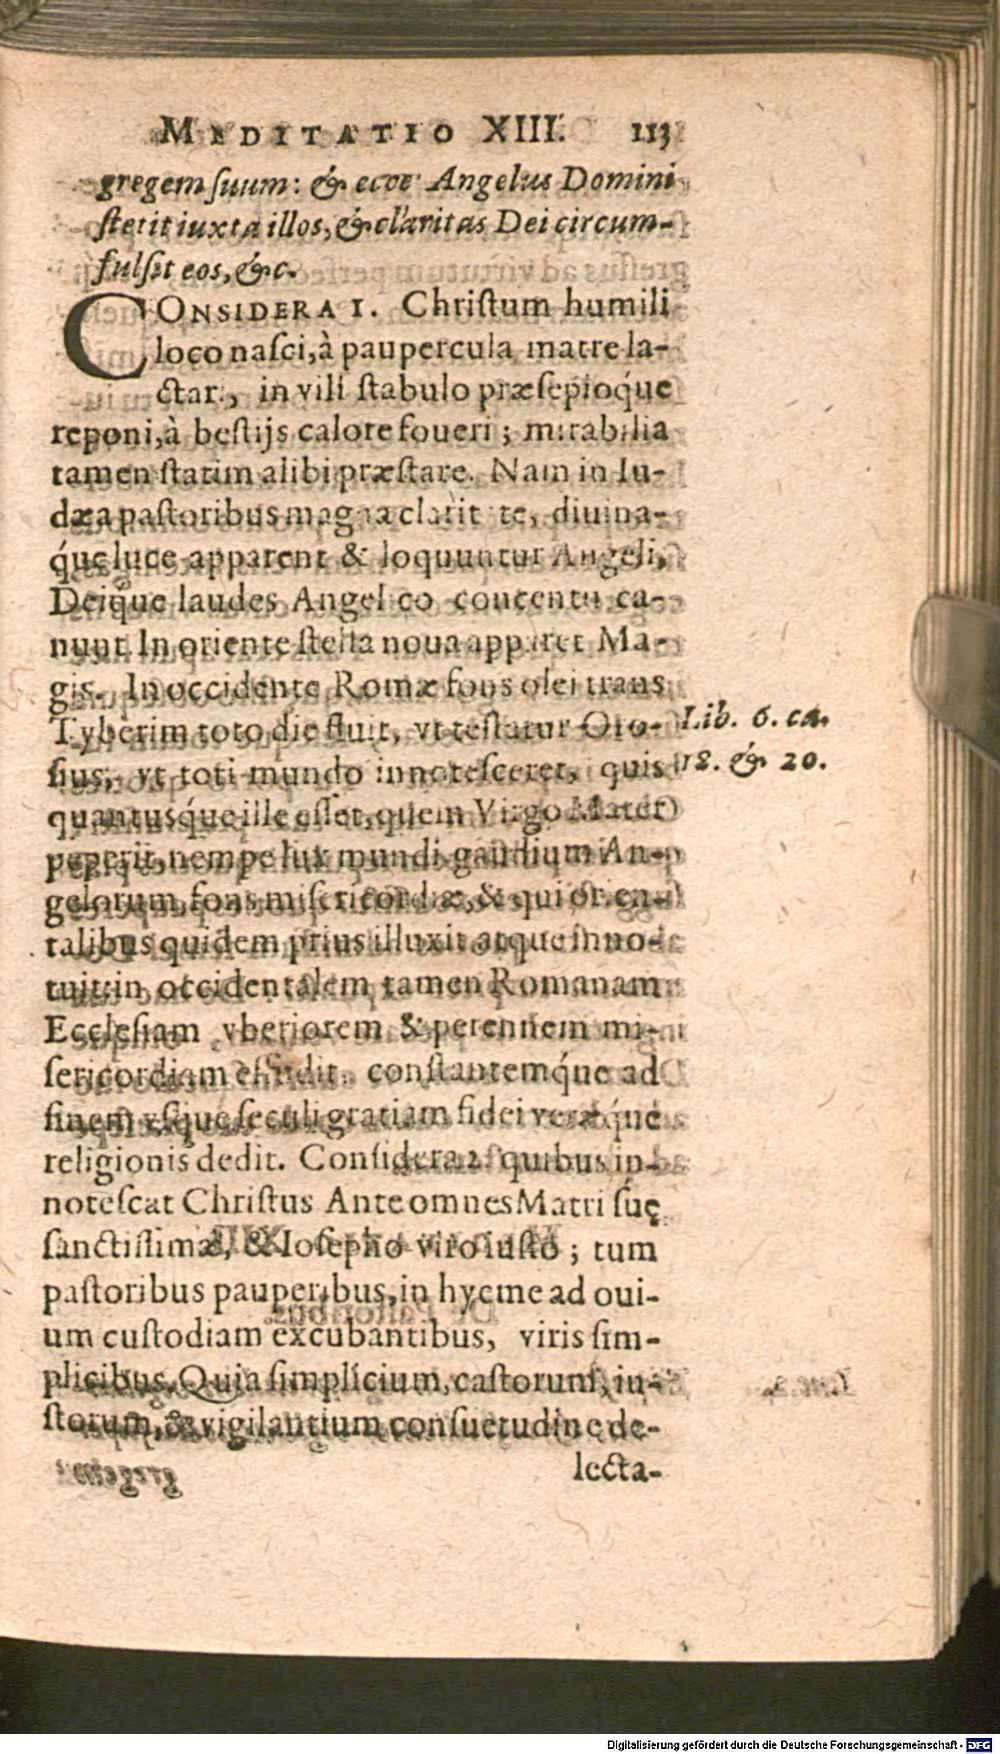 MEDITATIO XIII. 113
gregem suum: & ecce Angelus Domini
stetit iuxta illos, & claritas Dei circum-
fulsit eos, &c.
CONSIDERA 1. Christum humili
loco nasci, à paupercula matre la-
ctari, in vili stabulo præsepioq́ue
reponi, à bestijs calore foueri; mirabilia
tamen statim alibi præstare. Nam in Iu-
dæa pastoribus magna claritate, diuina-
q́ue luce apparent & loquuntur Angeli,
Deiq́ue laudes Angelico concentu ca-
nunt. In oriente stella noua apparet Ma-
gis. In occidente Romæ fons olei trans
Tyberim toto die fluit, vt testatur Oro-
sius, vt toti mundo innotesceret, quis
quantusq́ue ille esset, quem Virgo Mater
peperit, nempe lux mundi, gaudium An-
gelorum, fons misericordiæ, & qui orien-
talibus quidem prius illuxit atque inno-
tuit: in occidentalem tamen Romanam
Ecclesiam vberiorem & perennem mi-
sericordiam effudit, constantemq́ue ad
finem vsque seculi gratiam fidei veræq́ue
religionis dedit. Considera 2. quibus in-
notescat Christus Ante omnes Matri suę
sanctissimæ, & Iosepho viro iusto; tum
pastoribus pauperibus, in hyeme ad oui-
um custodiam excubantibus, viris sim-
plicibus. Quia simplicium, castorum, iu-
storum, & vigilantium consuetudine de-
lecta-
Lib. 6. ca.
18. & 20.
Digitalisierung gefördert durch die Deutsche Forschungsgemeinschaft - DFG